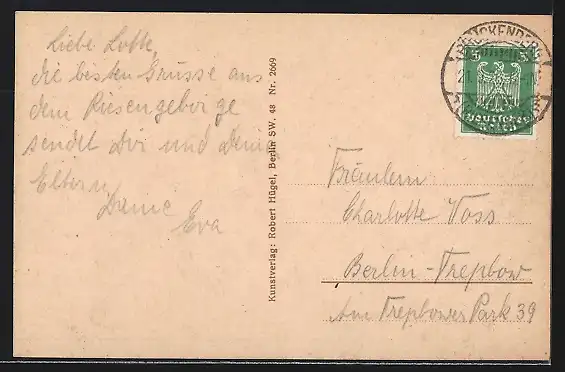 Liebe Lotte,
die besten Grüsse aus
dem Riesengebirge
sendet Dir und Deinen
Eltern
Deine
Eva
Kunstverlag: Robert Hügel, Berlin SW. 48 Nr. 2669
BRÜCKENBERG
5 5
Deutsches
Reich
Fräulein
Charlotte Voss
Berlin-Treptow
Am Treptower Park 39